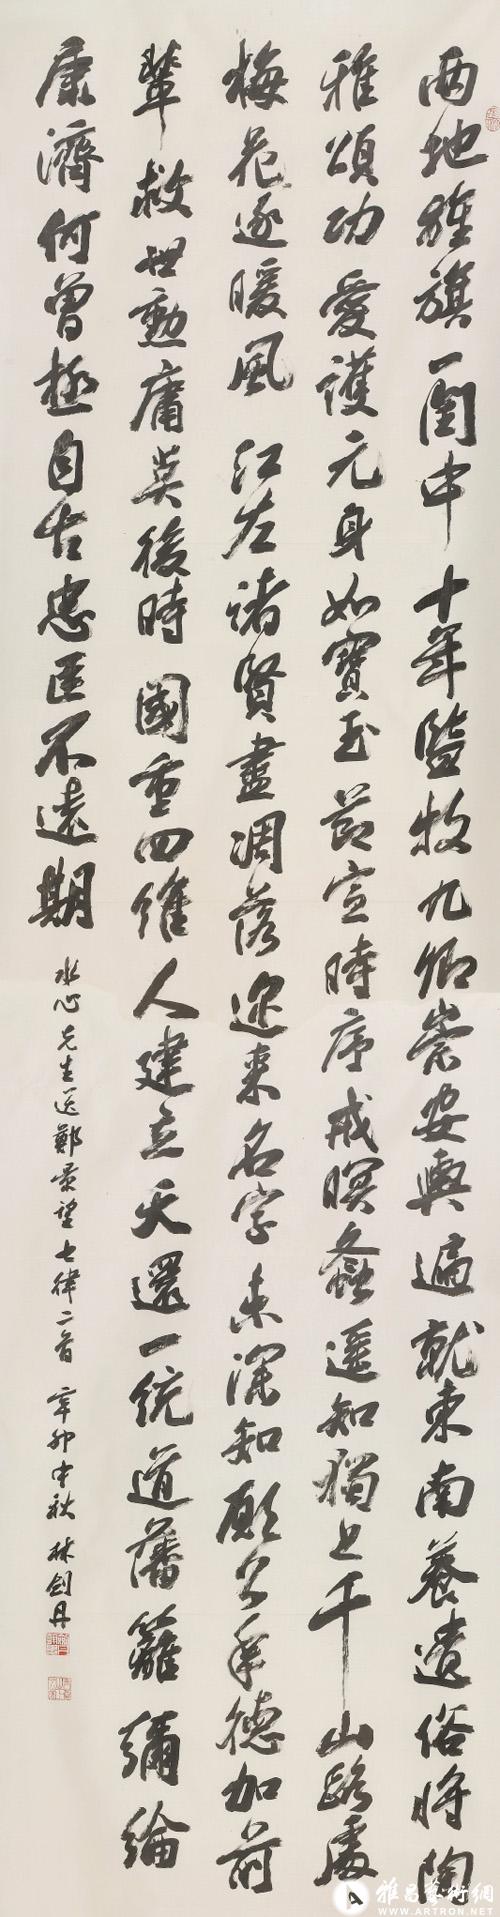 两地旌旗一閫中十年監牧九卿崇安輿遍就東南養遺俗將陶
雅頌功愛護元身如寶玉節宣時序戒暝蚤遥知獨上千山路處
梅花逐暖風江左諸賢盡凋落邇來名字未深知願公年德加前
輩救世勳庸莫後時國重四維人建立天還一統道藩籬彌綸
康濟何曾極自古忠臣不遠期
水心先生送鄭景望七律二首辛卯中秋林劍丹
雅昌藝術網
WWW.ARTRON.NET